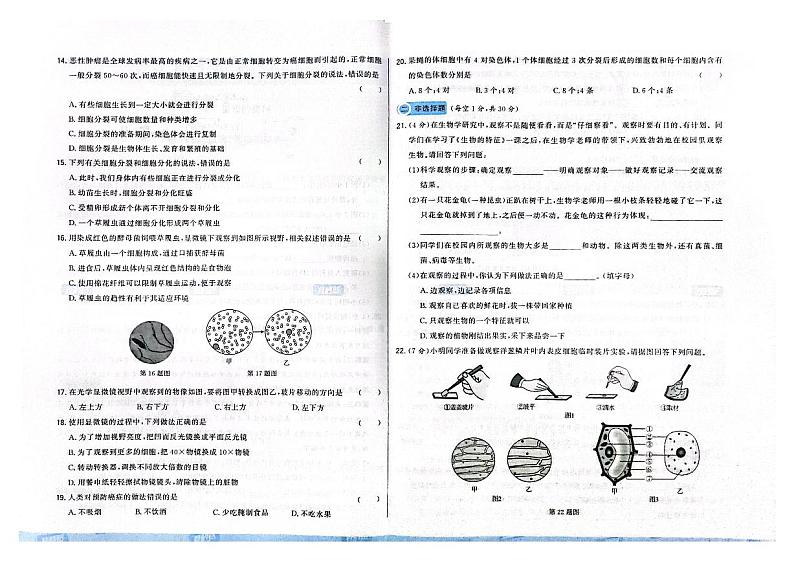 14. 恶性肿瘤是全球发病率最高的疾病之一,它是由正常细胞转变为癌细胞而引起的,正常细胞
一般分裂 50~60 次,而癌细胞能快速且无限制地分裂。下列关于细胞分裂的说法,错误的是
( )
A. 有些细胞生长到一定大小就会进行分裂
B. 细胞分裂可使细胞数量和种类增多
C. 细胞分裂的准备期间,染色体会进行复制
D. 细胞分裂是生物体生长、发育和繁殖的基础
15. 下列有关细胞分裂和细胞分化的说法,错误的是 ( )
A. 此时,我们身体内有些细胞正在进行分裂或分化
B. 幼苗生长时,细胞分裂和分化旺盛
C. 受精卵不能形成新个体离不开细胞分裂和分化
D. 一个草履虫通过细胞分化形成两个草履虫
16. 用染成红色的酵母菌饲喂草履虫,显微镜下观察到如图所示视野,相关叙述错误的是 ( )
A. 草履虫由一个细胞构成,通过口沟捕获酵母菌
B. 进食后,草履虫体内呈现红色结构是食物泡
C. 使用棉花纤维可以限制草履虫运动,便于观察
D. 草履虫的趋性有利于其适应环境
甲 乙
第16题图 第17题图
17. 在光学显微镜视野中观察到的物像如图,要将图甲转换成图乙,玻片移动的方向是 ( )
A. 左上方 B. 右下方 C. 右上方 D. 左下方
18. 使用显微镜的过程中,下列做法正确的是 ( )
A. 为了增加视野亮度,把凹面反光镜换成平面反光镜
B. 为了观察到更多的细胞,把 40×物镜换成 10×物镜
C. 转动转换器,调换不同放大倍数的目镜
D. 观察前,用纱布擦拭物镜镜头,清除物镜上的脏物
19. 人类对预防癌症的做法错误的是 ( )
A. 不吸烟 B. 不饮酒 C. 少吃腌制食品 D. 不吃水果
20. 果蝇的体细胞中有 4 对染色体,1 个体细胞经过 3 次分裂后形成的细胞数和每个细胞内含有
的染色体数分别是 ( )
A. 8 个;4 对 B. 3 个;4 对 C. 8 个;4 条 D. 6 个;4 条
二 非选择题 (每空 1 分,共 30 分)
21. (4 分)在生物学研究中,观察不是随便看看,而是“仔细察看”。观察时要有目的、有计划。同
学们在学习了《生物的特征》一课之后,在生物学老师的带领下,兴致勃勃地在校园里观察
生物。请回答下列问题:
(1)科学观察的步骤:确定观察______——明确观察对象——做好观察记录——交流观察
结果。
(2)有一只花金龟(一种昆虫)正趴在树干上,生物学老师用一根小枝条轻轻地碰了它一下,这
只花金龟就掉到了地上,之后便一动不动。花金龟的这种行为体现:______
______。
(3)同学们在校园内所观察的生物大多是______和动物。除这两类生物外,还有真菌、细
菌、病毒等生物。
(4)在观察的过程中,你认为下列做法正确的是______。(填字母)
A. 边观察,边记录各项信息
B. 观察自己喜欢的鲜花时,拔一株带回家种植
C. 只观察生物的一个特征就可以了
D. 观察植物的艳丽果实,采下来品尝一下
22. (7 分)小明同学准备做观察洋葱鳞片叶内表皮细胞临时装片实验,请据图回答下列问题。
①盖盖玻片 ②展平 ③清水 ④取材
图1
甲 乙 甲 乙
①
②
③
④
⑤
图2 图3
第 22 题图